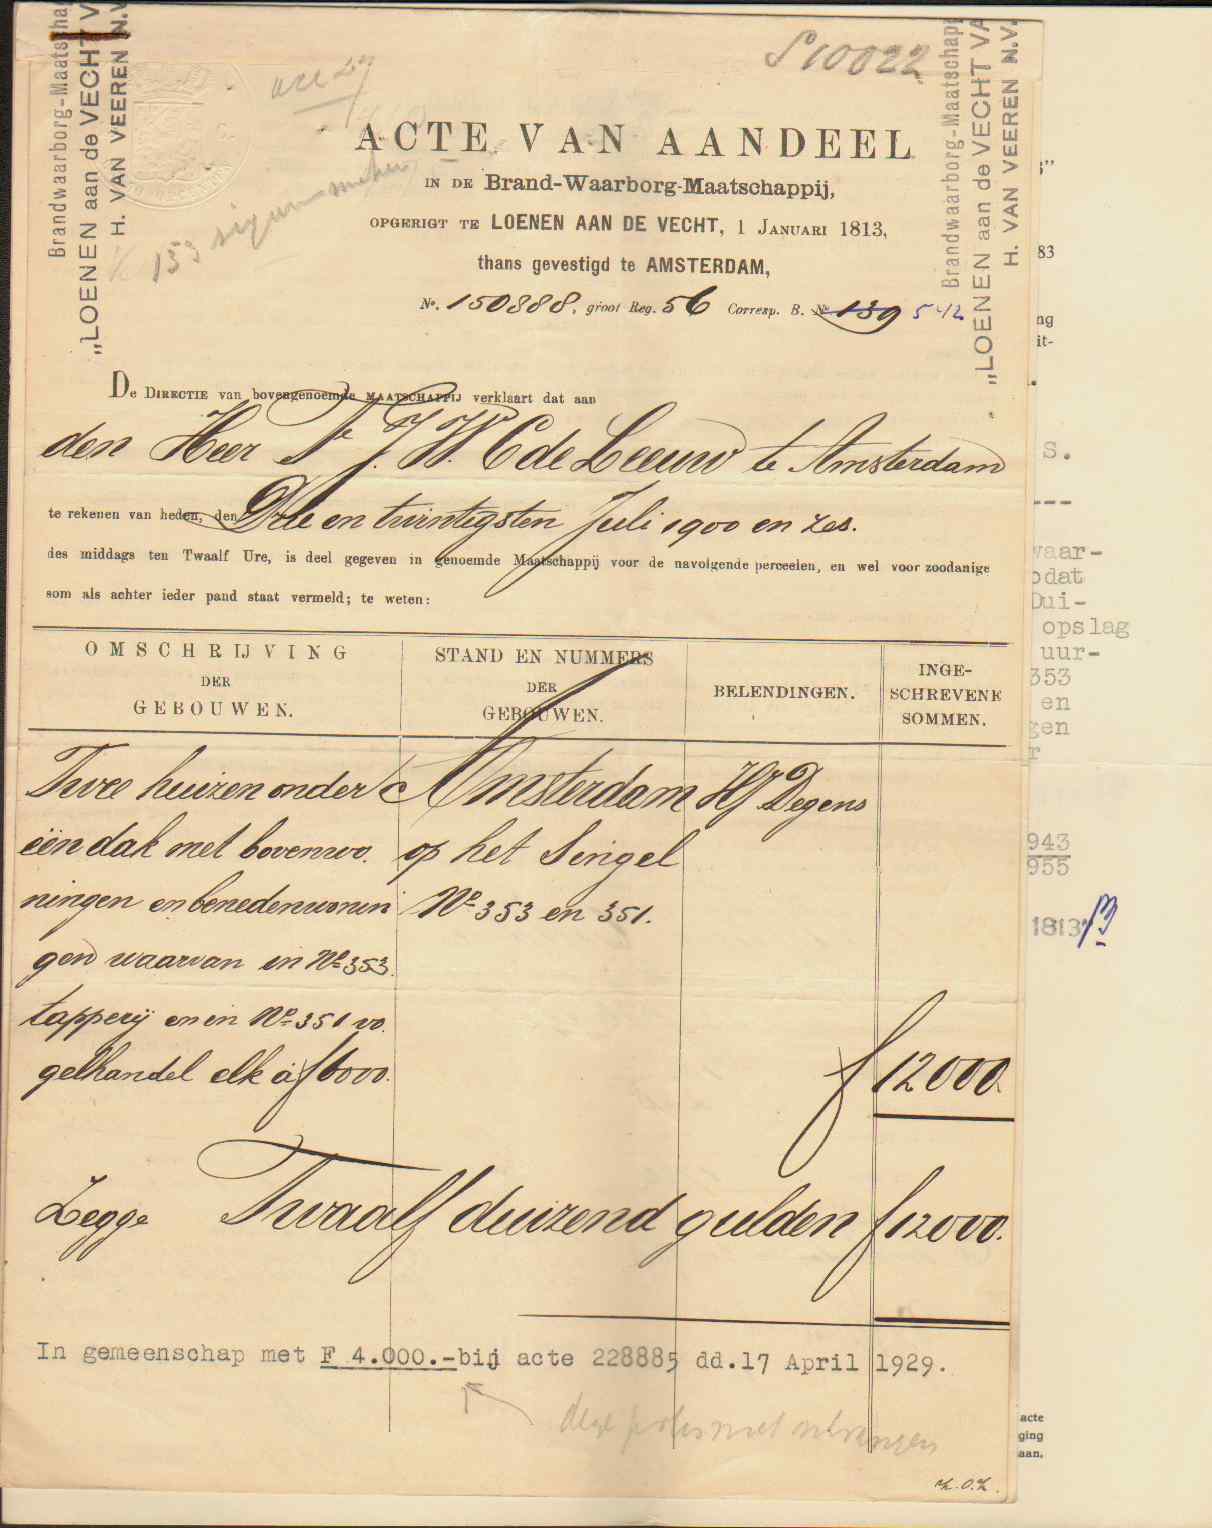 Brandwaarborg-Maatschap
„LOENEN aan de VECHT V
H. VAN VEEREN N.V.
S 10022
Brandwaarborg-Maatschapp
„LOENEN aan de VECHT VA
H. VAN VEEREN N.V.
153
ACTE VAN AANDEEL
IN DE Brand-Waarborg-Maatschappij,
OPGERIGT TE LOENEN AAN DE VECHT, 1 JANUARI 1813,
thans gevestigd te AMSTERDAM,
No. 150888, groot Reg. 56 Corresp. B. No 139 542
De DIRECTIE van bovengenoemde MAATSCHAPPIJ verklaart dat aan
den Heer Fr. J. W. C de Leeuw te Amsterdam
te rekenen van heden, den Drie en twintigsten Juli 1900 en zes.
des middags ten Twaalf Ure, is deel gegeven in genoemde Maatschappij voor de navolgende perceelen, en wel voor zoodanige
som als achter ieder pand staat vermeld; te weten:
OMSCHRIJVING
DER
GEBOUWEN.
STAND EN NUMMERS
DER
GEBOUWEN.
BELENDINGEN.
INGE-
SCHREVENE
SOMMEN.
Twee huizen onder
één dak met bovenwo.
ningen en benedenwonin
gen waarvan in No 353
tapperij en in No 351 vo.
gelhandel elk à f 6000.
Amsterdam
op het Singel
No 353 en 351.
HJ Degens
f 12000.
Zegge Twaalf duizend gulden f 12000.
In gemeenschap met F 4.000.- bij acte 228885 dd. 17 April 1929.
deze polis niet ontvangen
83
ng
it-
S.
---
waar-
odat
Dui-
opslag
uur-
353
en
gen
r
943
955
1813"
acte
ging
aan.